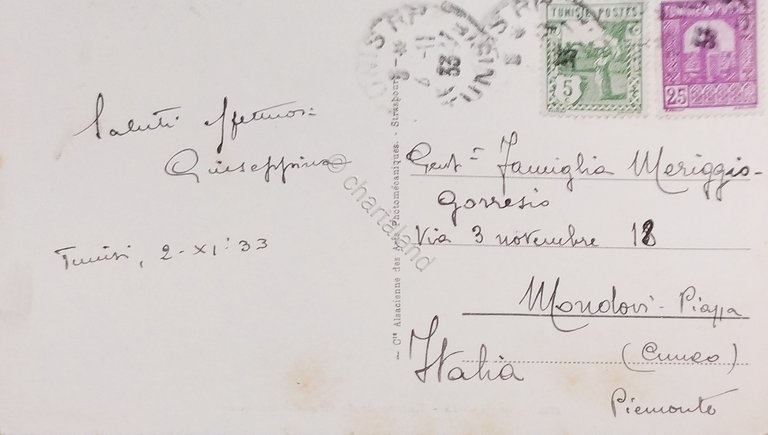 TUNISIE POSTES
5
TUNISIE POSTES
25
Saluti affettuosi
Giuseppina
Tunisi, 2-XI-33
Gent= Famiglia Meriggio-
Gorresio
Via 3 novembre 18
Mondovì-Piazza
(Cuneo)
Italia
Piemonte
~ Cie Alsacienne des Arts Photomécaniques. - Strasbourg. ~
© chartaland